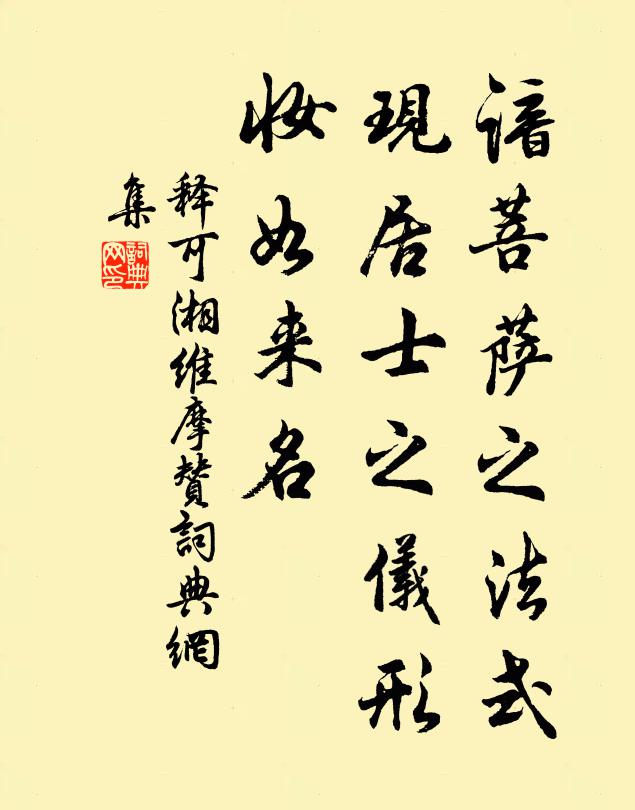 諳菩萨之法式
現居士之儀形
妝如来名
释可湘維摩贊詞典網
集
詞典網印